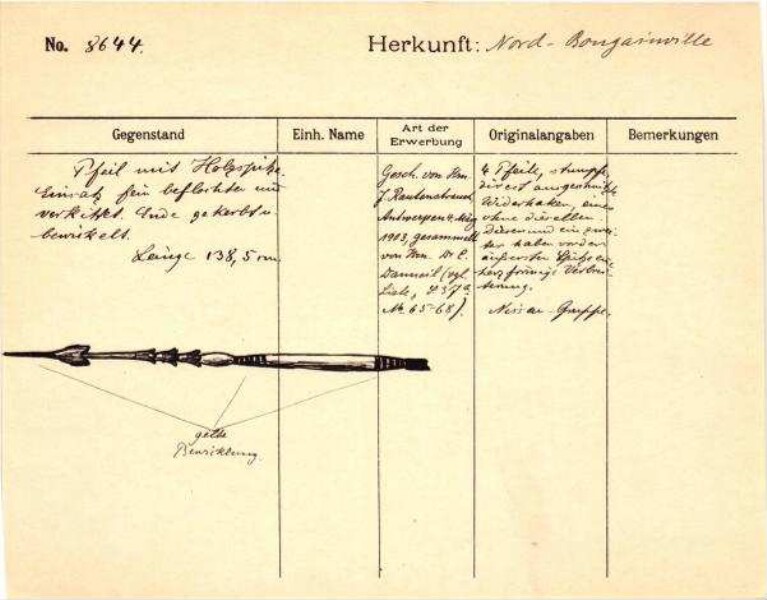 No. 8644.
Herkunft: Nord-Bougainville
Gegenstand
Einh. Name
Art der Erwerbung
Originalangaben
Bemerkungen
Pfeil mit Holzspitze.
Einsatz fein beflochten und
verkittet. Ende gekerbt u.
bewickelt.
Länge 138,5 cm
Gesch. von Hrn.
J. Rautenstrauch,
Antwerpen
1903, gesammelt
von Hrn. Dr E.
Danneil (vgl.
Liste, S 37a
No 65-68).
4 Pfeile, stumpfe,
ausgeschnitzte
Widerhaken, einer
ohne dieselben.
Dieser und ein
haben vorder
äussersten Spitze
herzförmige
Nissan-Gruppe.
gelbe
Bewicklung.